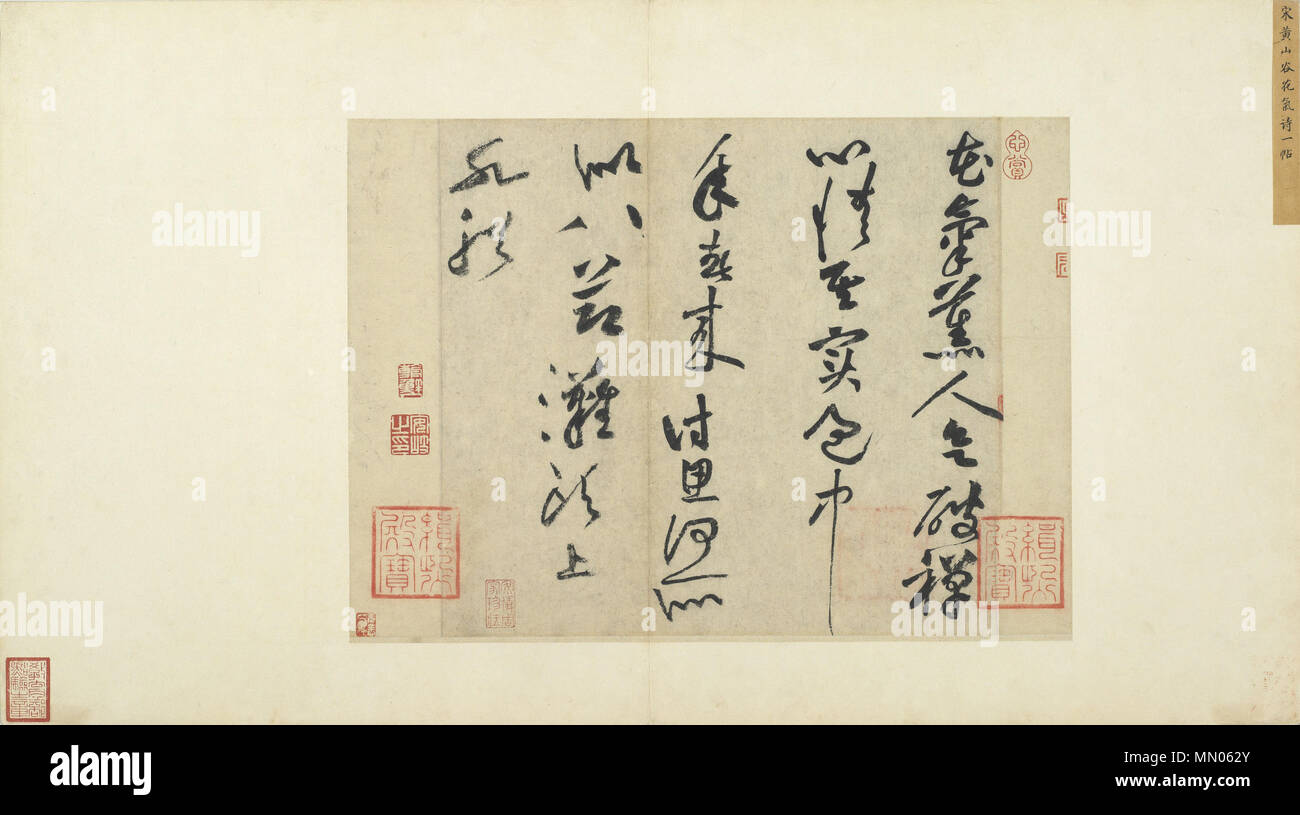 宋黃山谷花氣诗一帖
花氣薰人欲破禪
心情其實過中
年春來詩思何所
似八節灘頭上
水船
心賞
緝熙殿寶
緝熙殿寶
安岐之印
安儀周家珍藏
alamy
alamy
alamy
alamy
alamy
alamy
Image ID: MN062Y
www.alamy.com